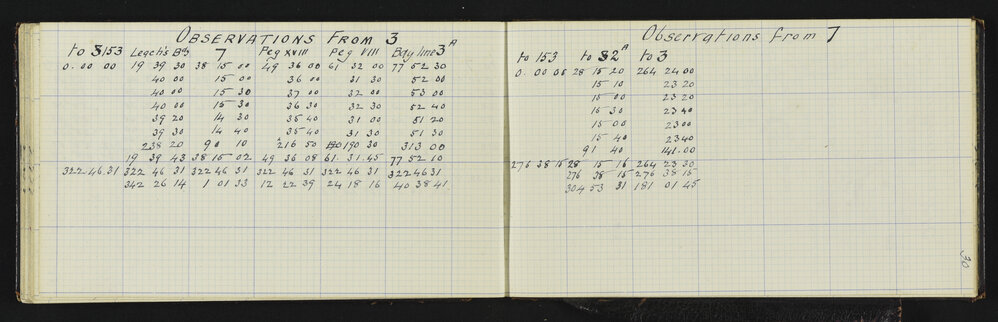 OBSERVATIONS FROM 3
to 3 153 Legch's Bᵈʸ 7 Peg XVIII Peg VIII Bay line 3ᴬ
0. 00 00 19 39 30 38 15 00 49 36 00 61 32 00 77 52 30
40 00 15 00 36 00 31 30 52 00
40 00 15 30 37 00 32 00 53 00
40 00 15 30 36 30 32 30 52 40
39 20 14 30 35 40 31 00 51 20
39 30 14 40 35 40 31 30 51 30
238 20 90 10 216 50 190 30 313 00
19 39 43 38 15 02 49 36 08 61 31 45 77 52 10
322 46 31 322 46 31 322 46 31 322 46 31 322 46 31 322 46 31
342 26 14 1 01 33 12 22 39 24 18 16 40 38 41
Observations from 7
to 153 to 82ᴬ to 3
0. 00 00 28 15 20 264 24 00
15 10 23 20
15 00 23 20
15 30 23 40
15 00 23 00
15 40 23 40
91 40 141 00
276 38 15 28 15 16 264 23 30
276 38 15 276 38 15
304 53 31 181 01 45
30